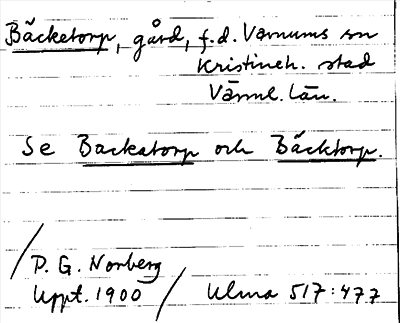 Bäcketorp, gård, f.d. Varnums sn
Kristineh. stad
Värml. län.
Se Backatorp och Bäcktorp.
D. G. Norberg
Uppt. 1900
Ulma 517:477